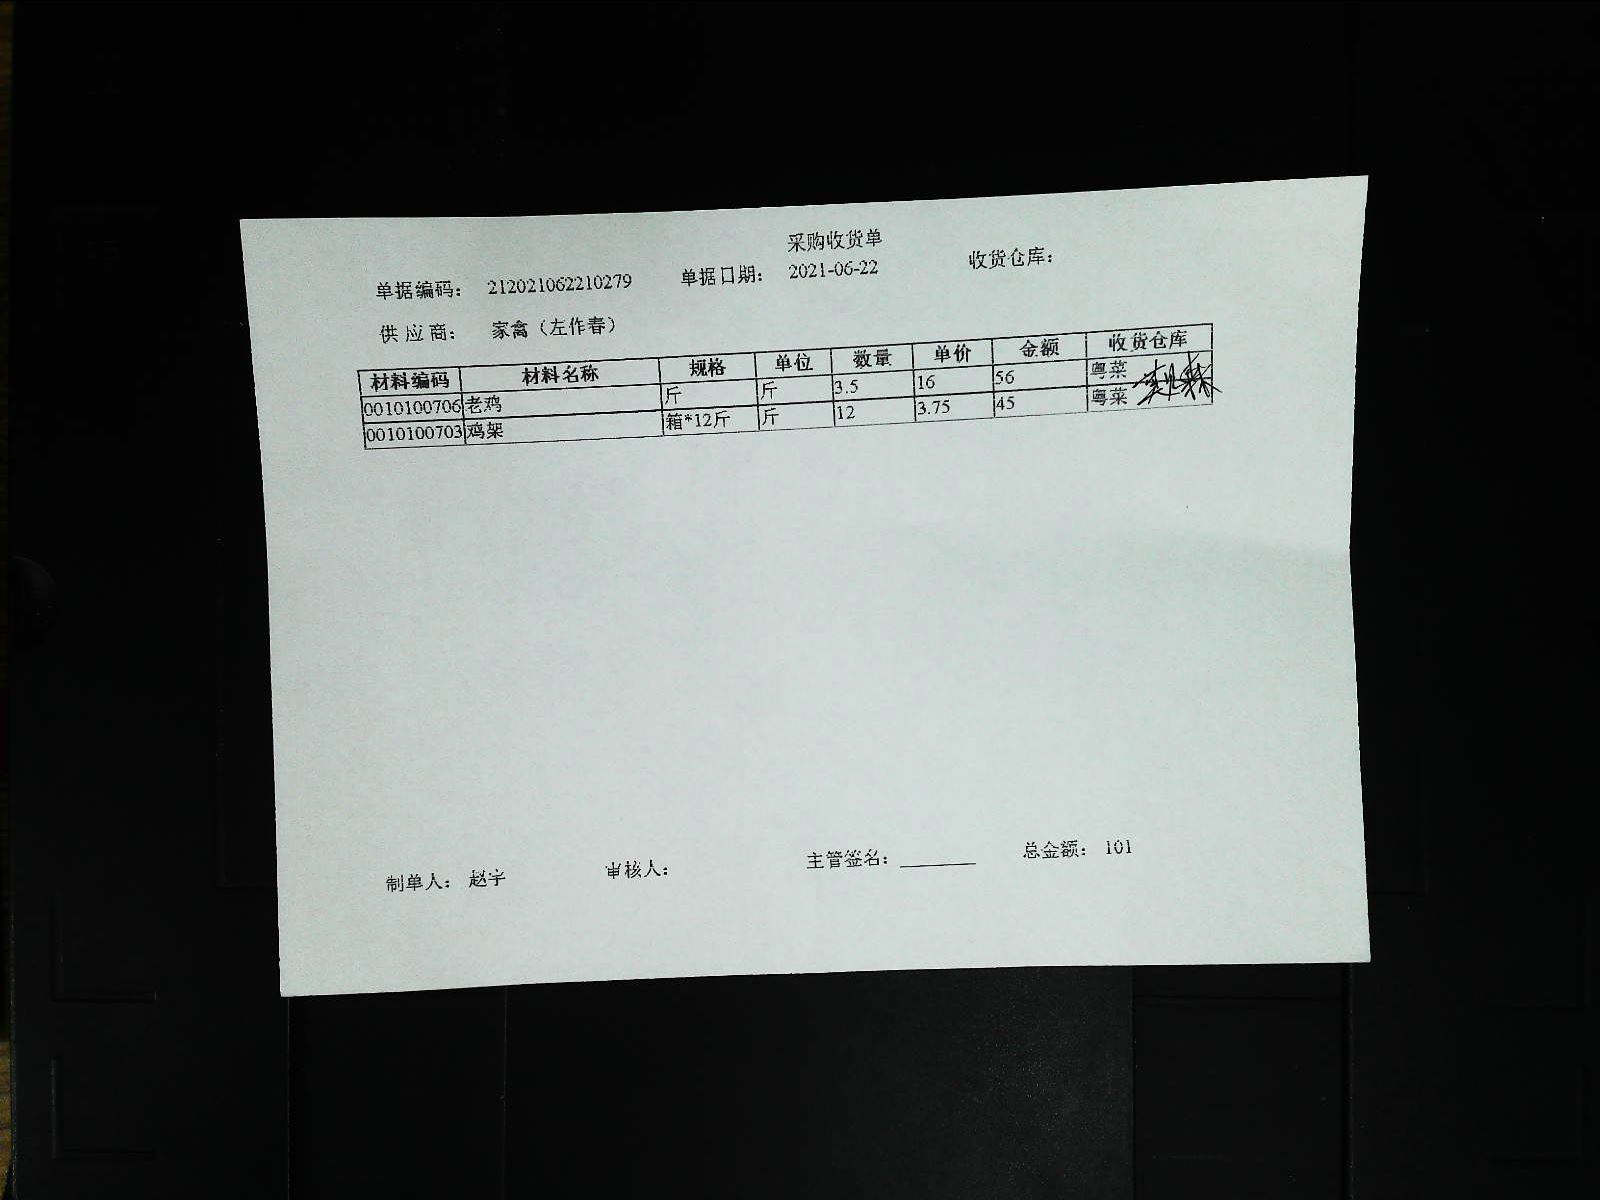 采购收货单
单据编码: 212021062210279 单据日期: 2021-06-22 收货仓库:
供 应 商: 家禽（左作春）
材料编码 材料名称 规格 单位 数量 单价 金额 收货仓库
0010100706 老鸡 斤 斤 3.5 16 56 粤菜
0010100703 鸡架 箱*12斤 斤 12 3.75 45 粤菜
制单人: 赵宇 审核人: 主管签名: ________ 总金额: 101